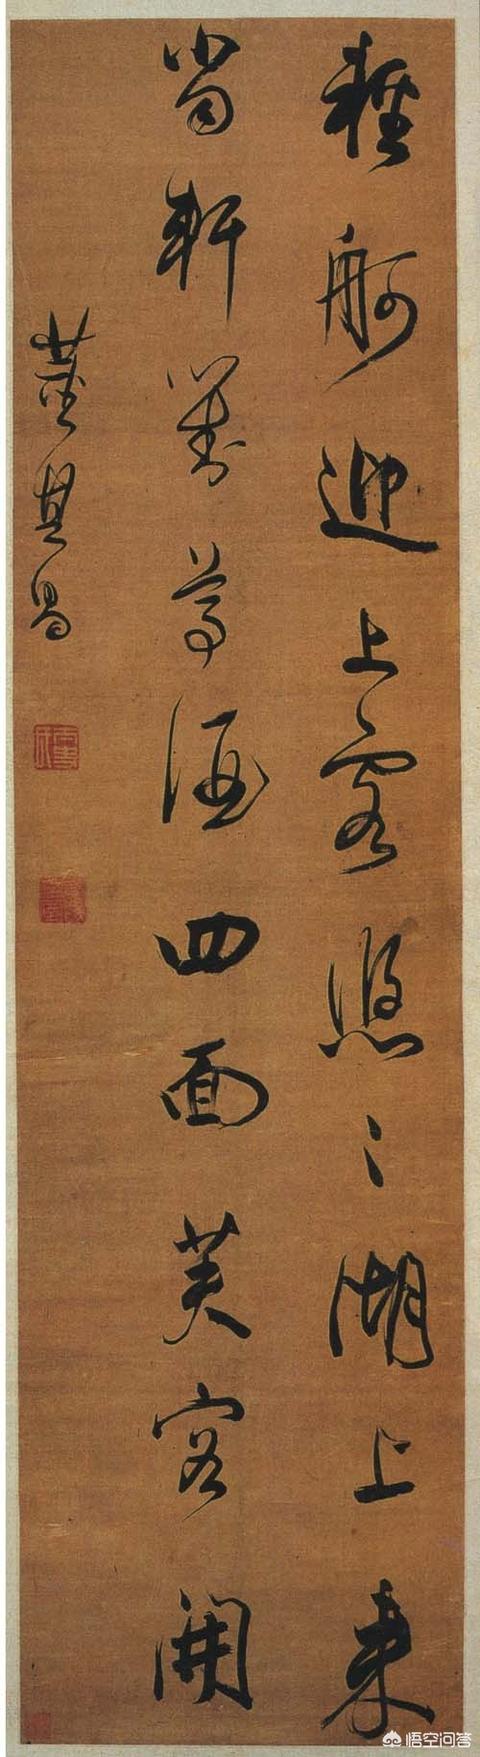 轻舸迎上客悠〻湖上来
当轩对尊酒四面芙容开
董其昌
悟空问答